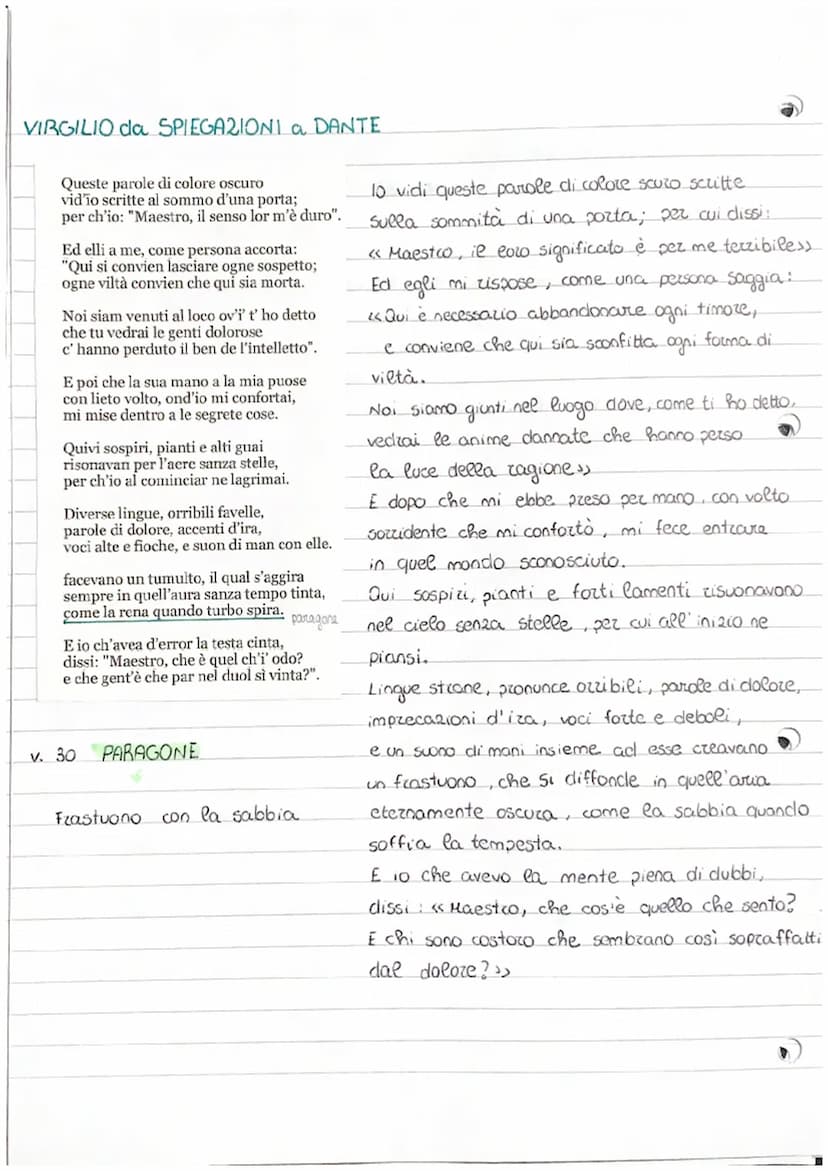 VIRGILIO da SPIEGAZIONI a DANTE
Queste parole di colore oscuro
vid'ïo scritte al sommo d'una porta;
per ch'io: "Maestro, il senso lor m'è duro".
Ed elli a me, come persona accorta:
"Qui si convien lasciare ogne sospetto;
ogne viltà convien che qui sia morta.
Noi siam venuti al loco ov'i' t' ho detto
che tu vedrai le genti dolorose
c' hanno perduto il ben de l'intelletto".
E poi che la sua mano a la mia puose
con lieto volto, ond'io mi confortai,
mi mise dentro a le segrete cose.
Quivi sospiri, pianti e alti guai
risonavan per l'aere sanza stelle,
per ch'io al cominciar ne lagrimai.
Diverse lingue, orribili favelle,
parole di dolore, accenti d'ira,
voci alte e fioche, e suon di man con elle.
facevano un tumulto, il qual s'aggira
sempre in quell'aura sanza tempo tinta,
come la rena quando turbo spira.
paragone
E io ch'avea d'error la testa cinta,
dissi: "Maestro, che è quel ch'i' odo?
e che gent'è che par nel duol sì vinta?".
v. 30 PARAGONE
Frastuono con la sabbia
Io vidi queste parole di colore scuro scritte
sulla sommità di una porta; per cui dissi:
«Maestro, il loro significato è per me terribile»
Ed egli mi rispose, come una persona saggia:
«Qui è necessario abbandonare ogni timore,
e conviene che qui sia sconfitta ogni forma di
viltà.
Noi siamo giunti nel luogo dove, come ti ho detto,
vedrai le anime dannate che hanno perso
la luce della ragione»
E dopo che mi ebbe preso per mano, con volto
sorridente che mi confortò, mi fece entrare
in quel mondo sconosciuto.
Qui sospiri, pianti e forti lamenti risuonavano
nel cielo senza stelle, per cui all'inizio ne
piansi.
Lingue strane, pronunce orribili, parole di dolore,
imprecazioni d'ira, voci forte e deboli,
e un suono di mani insieme ad esse creavano
un frastuono, che si diffonde in quell'aria
eternamente oscura, come la sabbia quando
soffia la tempesta.
E io che avevo la mente piena di dubbi,
dissi: «Maestro, che cos'è quello che sento?
E chi sono costoro che sembrano così sopraffatti
dal dolore?»